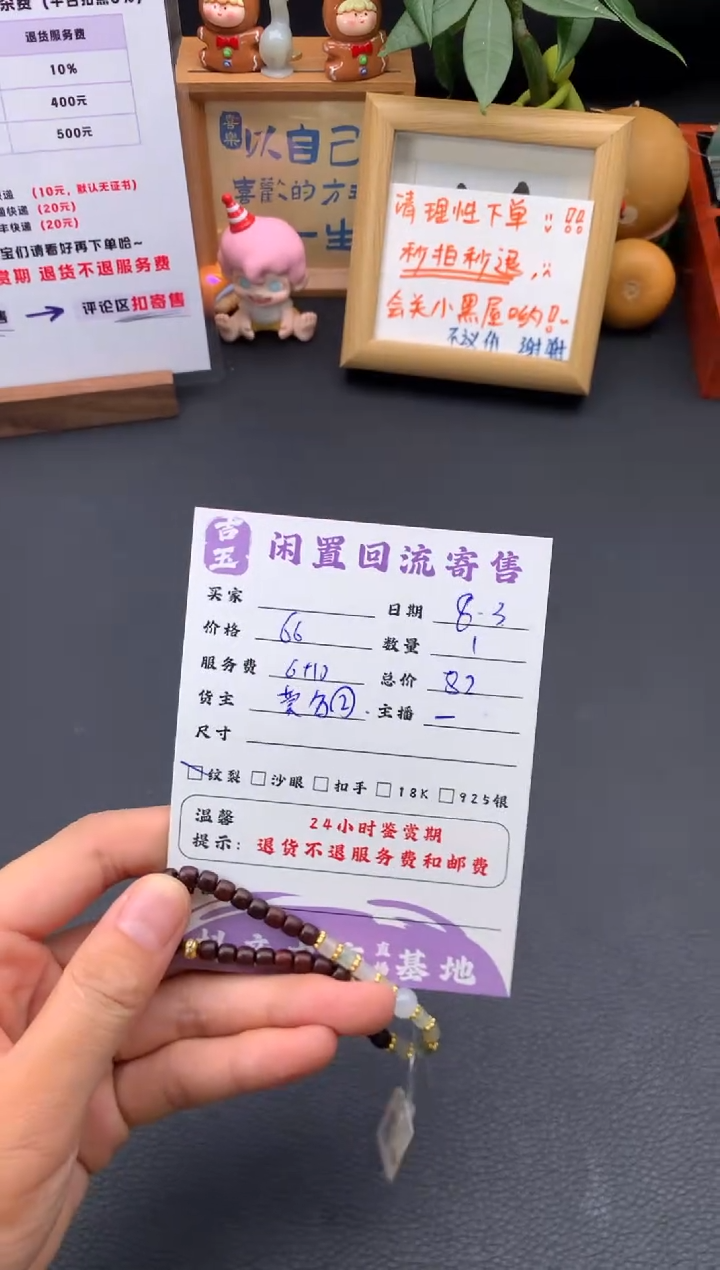 退货服务费
10%
400元
500元
(10元，默认无证书)
快递 (20元)
丰快递 (20元)
宝们请看好再下单哈~
赏期 退货不退服务费
评论区扣寄售
喜樂
以自己
喜歡的方式
一生
请理性下单!!
秒拍秒退
会关小黑屋哟!~
不议价 谢谢
吉玉 闲置回流寄售
买家 日期 8-3
价格 66 数量 1
服务费 6+10 总价 82
货主 ② 主播 一
尺寸
纹裂 沙眼 扣手 18K 925银
温馨提示：
24小时鉴赏期
退货不退服务费和邮费
直播基地